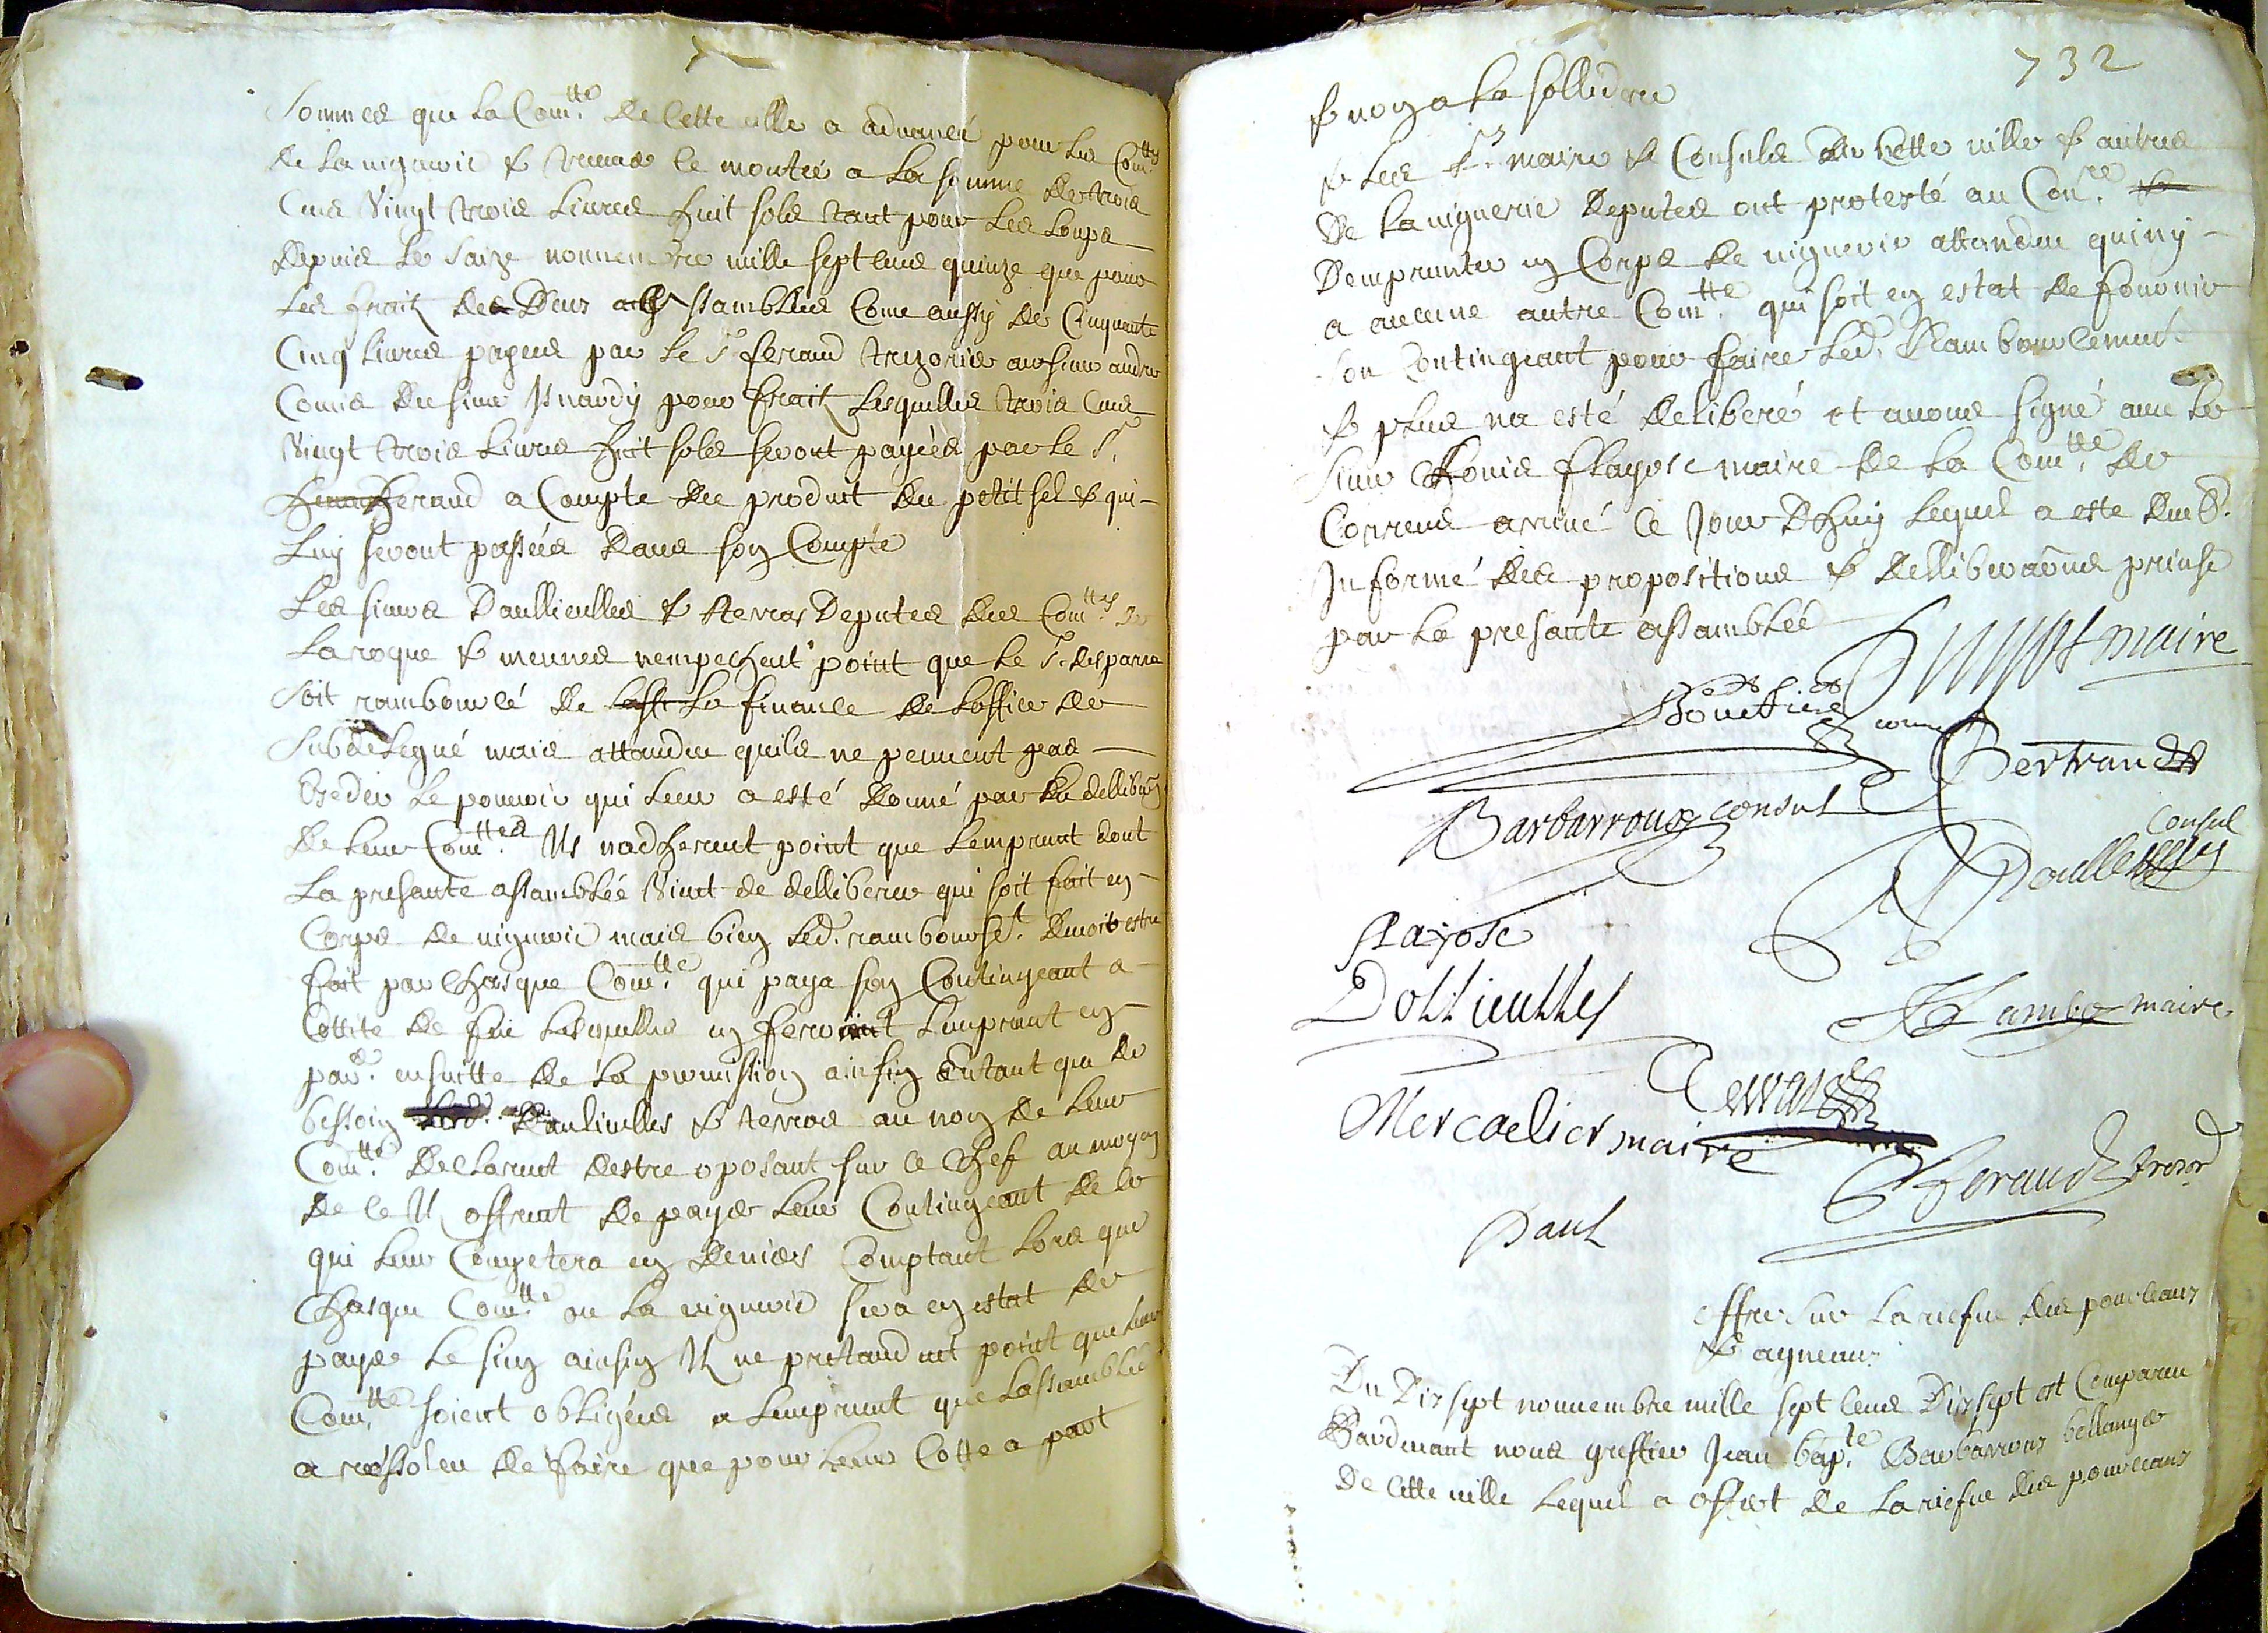 sommes que la Com.tte de cette ville a advancé pour les Com.ttes
de la viguerie & trouvé le montée a la somme de trois
cens vingt trois livres huit sols tant pour les loups
depuis le saize novvembre mille sept cens quinze que pour
les frait des deux assamblées come aussy des cinquante
cinq livres payeés par le Sr feraud trezorier au sieur andre
comis du sieur Isnardy pour frait lesquelles trois cens
vingt trois livres huit sols seront payées par le Sr
feraud a compte du produit du petit sel & qui
luy seront passées dans son compte
Les sieurs Daullieulles & terras deputes des Com.ttes de
laroque & meunes nempechent point que le Sr desparra
soit rambourcé de la finance de loffice de
subdelegué mais attandu quils ne peuvent pas
exeder le pouvoir qui leur a esté donné par la dellibon
de leur Com.ttes Ils nadherent point que lemprunt dont
la presante assamblée vient de delliberer qui soit fait en
corps de viguerie mais bien led. rambourst devoit estre
fait par chasque Com.tte qui paya son contingeant a
cottité de feu lesquelles en feroint lemprunt en
par.er ensuitte de la permission ainsin dautant que de
bessoin Daulieulles & terras au nom de leur
Com.tte declarent destre oposant sur ce chef au moyen
de ce Il offrent de payer leur contingeant de ce
qui leur competera en deniers comptant lors que
chasque Com.tte ou la viguerie sera en estat de
payer le sien ainsin Il ne pretandent point que leur
Com.tte soient obligées a lemprunt que lassamblée
a ressoleu de faire que pour leur cotte a part
732
& non a la sollidere
& les Srs maire & Consuls de cette ville & autres
de la viguerie deputes ont protesté au Con.re
demprunter en Corps de viguerie attandu quiny
a aucune autre Com.tte qui soit en estat de fournir
son contingeant pour faire led. Rambourcement
& plus na esté deliberé et avons signé avec le
sieur flayosc maire de la Com.tte de
Correns arrivé ce jour dhuy lequel a este deub.t
Informé des propositions & delliberaons prinse
par la presante assamblée
maire
Bertrand
Barbarroux consul
consul
flayosc
Dollieulles
Lambe maire
Terras
Mercadier maire
feraud tresor
Paul
offre sur la riefve des pourceaux
& agneaux
Du dix sept novvembre mille sept cens dix sept est comparu
Pardevant nous greffier Jean bap.te Barbarroux bellanger
de cette ville lequel a offert de la riefve des pourceaux